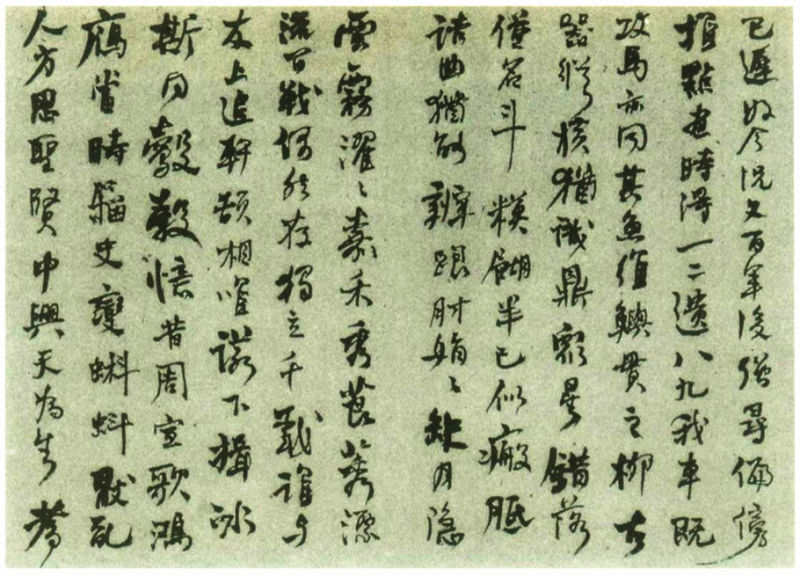 已遲如今況又百年後強尋偏傍
推點畫時得一二遺八九我車既
攻馬亦同其魚維鱮貫之柳古
器縱橫猶識鼎衆星錯落
僅名斗糢糊半已似瘢胝
詰曲猶能辨跟肘娟〻缺月隱
雲霧濯〻嘉禾秀莨莠漂
流百戰偶然存獨立千載誰與
友上追軒頡相唯諾下揖冰
斯同鷇㝅憶昔周宣歌鴻
鴈當時籀史變蝌蚪厭亂
人方思聖賢中興天為生耆